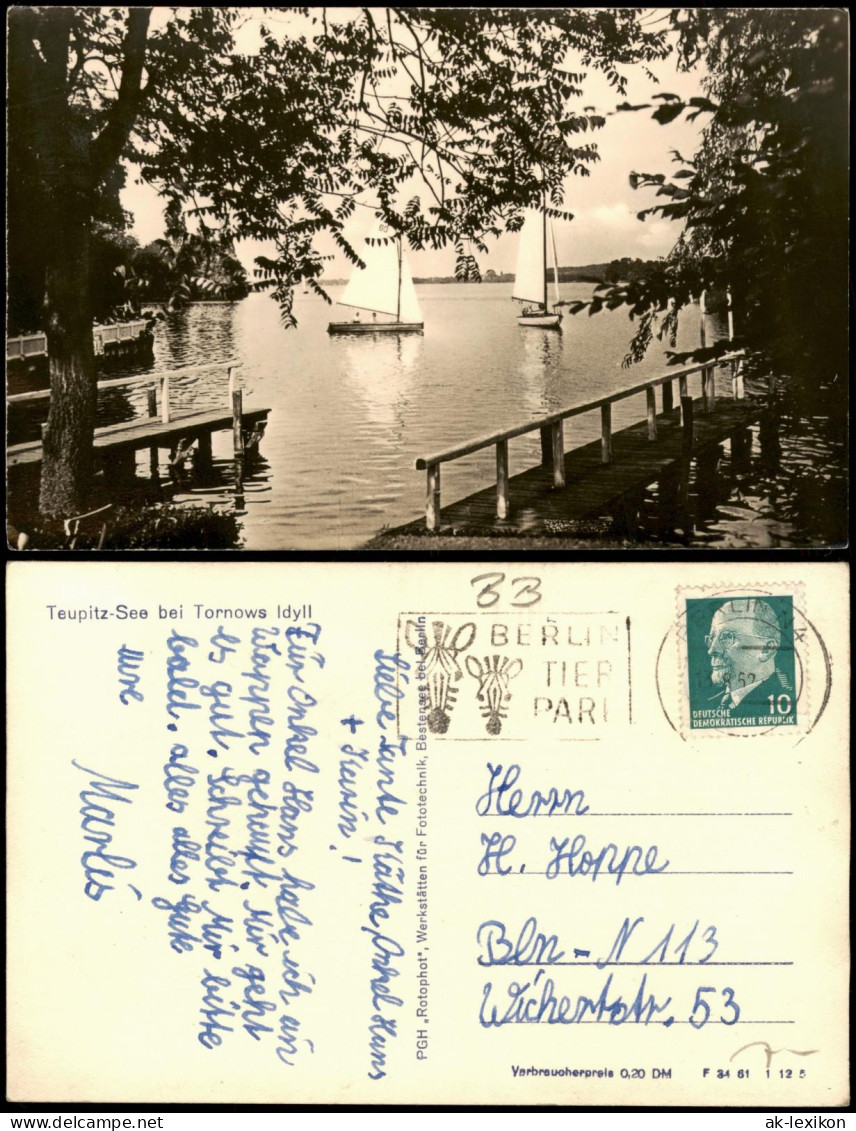 Teupitz-See bei Tornows Idyll
Liebe Tante Käthe, Onkel Hans
+ Karin!
Für Onkel Hans habe ich ein
Wappen gehaupt. Mir geht
es gut. Schreibt Mir bitte
bald. alles alles Gute
eure
Marlis
PGH „Rotophot", Werkstätten für Fototechnik, Bestensee bei Berlin
BB
BERLIN
TIER
PARK
DEUTSCHE
DEMOKRATISCHE REPUBLIK
10
Herrn
H. Hoppe
Bln - N 113
Wichertstr. 53
Verbraucherpreis 0,20 DM F 34 61 1 12 5
ak-lexikon ak-lexikon.com